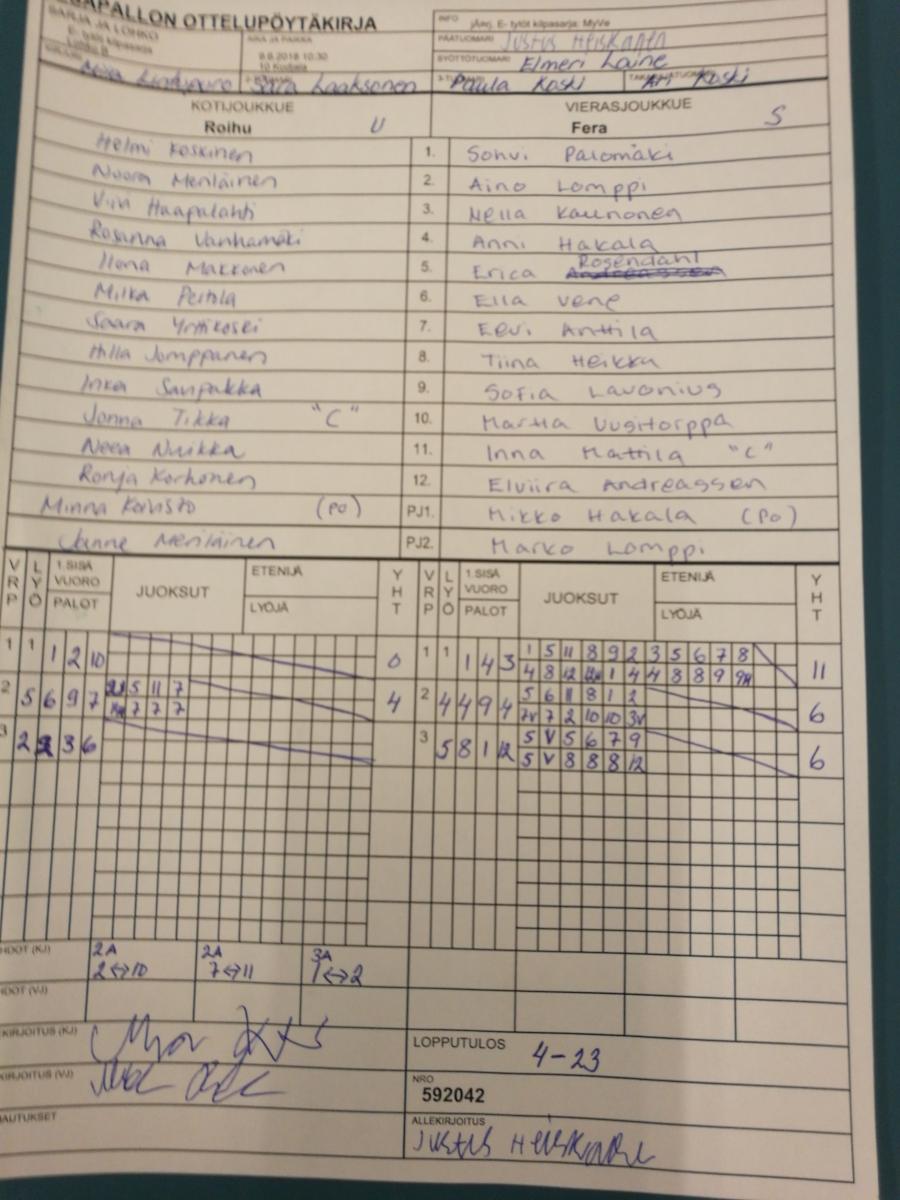 PESÄPALLON OTTELUPÖYTÄKIRJA
SARJA JA LOHKO
E- tytöt kilpasarja
Lohko B
AIKA JA PAIKKA
9.6.2018 10:30
INFO
jÄärj. E- tytöt kilpasarja: MyVe
PÄÄTUOMARI Justus Heiskanen
SYÖTTÖTUOMARI Elmeri Laine
Sara Laaksonen Paula Koski Ari Koski
KOTIJOUKKUE VIERASJOUKKUE
Roihu U Fera S
Helmi Koskinen 1. Sohvi Palomäki
Noora Meriläinen 2. Aino Lomppi
Viivi Haapalahti 3. Nella Kaunonen
Rosanna Vanhamäki 4. Anni Hakala
Ilona Makkonen 5. Erica Rosendahl
Milka Peltola 6. Ella Vene
Saara Yrttikoski 7. Eevi Anttila
Hilla Jomppanen 8. Tiina Heikka
Inka Sanpakka 9. Sofia Lavonius
Jonna Tikka "C" 10. Martta Uusitorppa
Neea Nuikka 11. Inna Mattila "C"
Ronja Korhonen 12. Elviira Andreassen
Minna Koivisto (PO) PJ1. Mikko Hakala (PO)
Janne Meriläinen PJ2. Marko Lomppi
VRP LYÖ 1.SISÄ VUORO PALOT JUOKSUT ETENIJÄ LYÖJÄ YHT VRP LYÖ 1.SISÄ VUORO PALOT JUOKSUT ETENIJÄ LYÖJÄ YHT
1 1 1 2 10 0 1 1 1 4 3 1 5 11 8 9 2 3 5 6 7 8 11
4 8 12 1 4 4 8 8 9 9
2 5 6 9 7 5 11 7 4 2 4 4 9 4 5 6 11 8 1 2 6
7 7 7 7v 7 2 10 10 3v
3 2 3 6 0 3 5 8 1 12 5 V 5 6 7 9 6
5 V 8 8 8 12
HDOT (KJ) 2A 2A 3A
2↔10 7↔11 1↔2
HDOT (VJ)
KIRJOITUS (KJ)
LOPPUTULOS 4-23
KIRJOITUS (VJ)
NRO
592042
AUTUKSET
ALLEKIRJOITUS
Justus Heiskanen